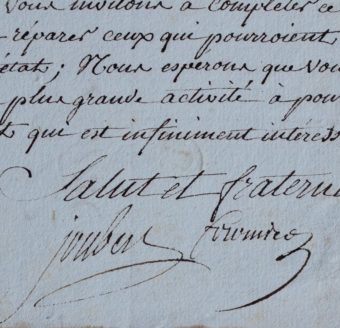 vous invitons à completer ce
réparer ceux qui pourroient
état; Nous esperons que vou
plus grande activité à pou
qui est infiniment intéress
Salut et fraterni
joubert